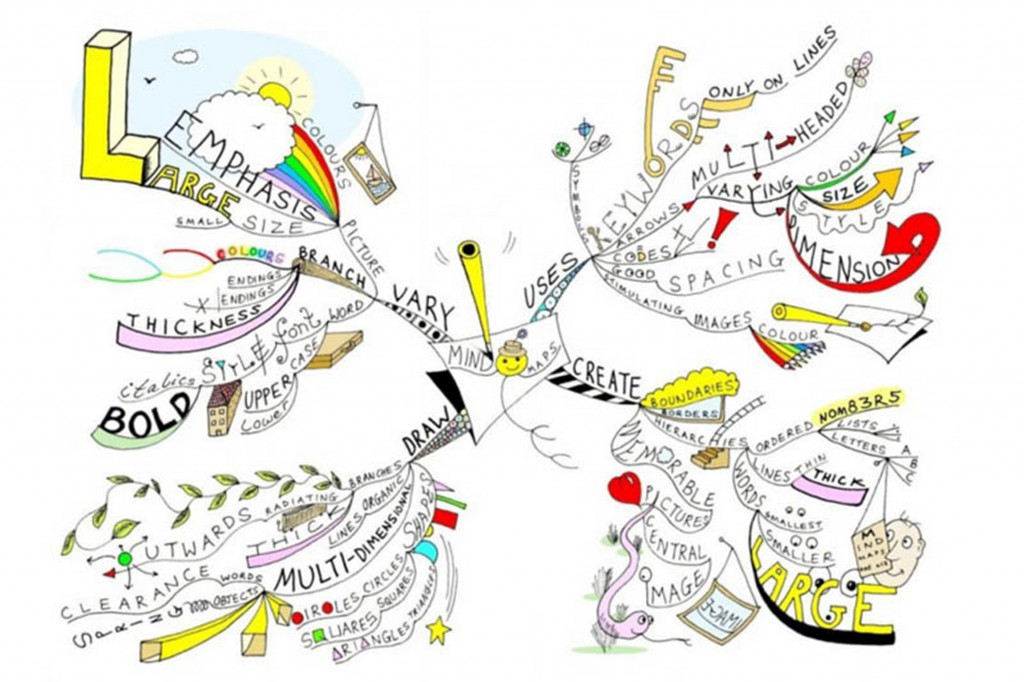 MIND MAPS
VARY
PICTURE
COLOURS
EMPHASIS
SIZE
LARGE
SMALL
BRANCH
COLOURS
ENDINGS
ENDINGS
THICKNESS
WORD
font
STYLE
italics
BOLD
CASE
UPPER
Lower
USES
SYMBOLS
KEYWORDS
ONLY ON LINES
ARROWS
MULTI HEADED
VARYING
COLOUR
SIZE
STYLE
DIMENSION
CODES
GOOD SPACING
STIMULATING IMAGES
COLOUR
CREATE
BOUNDARIES
BORDERS
HIERARCHIES
ORDERED
NOM83R5
LISTS
LETTERS
A
B
C
LINES
THIN
THICK
WORDS
SMALLEST
SMALLER
LARGE
MIND
MAPS
MEMORABLE
PICTURES
CENTRAL
IMAGE
DRAW
BRANCHES
RADIATING
OUTWARDS
ORGANIC
LINES
THICK
MULTI-DIMENSIONAL
WORDS
OBJECTS
CLEARANCE
SPACING
SHAPES
CIRCLES
CIRCLES
SQUARES
SQUARES
TRIANGLES
TRIANGLES